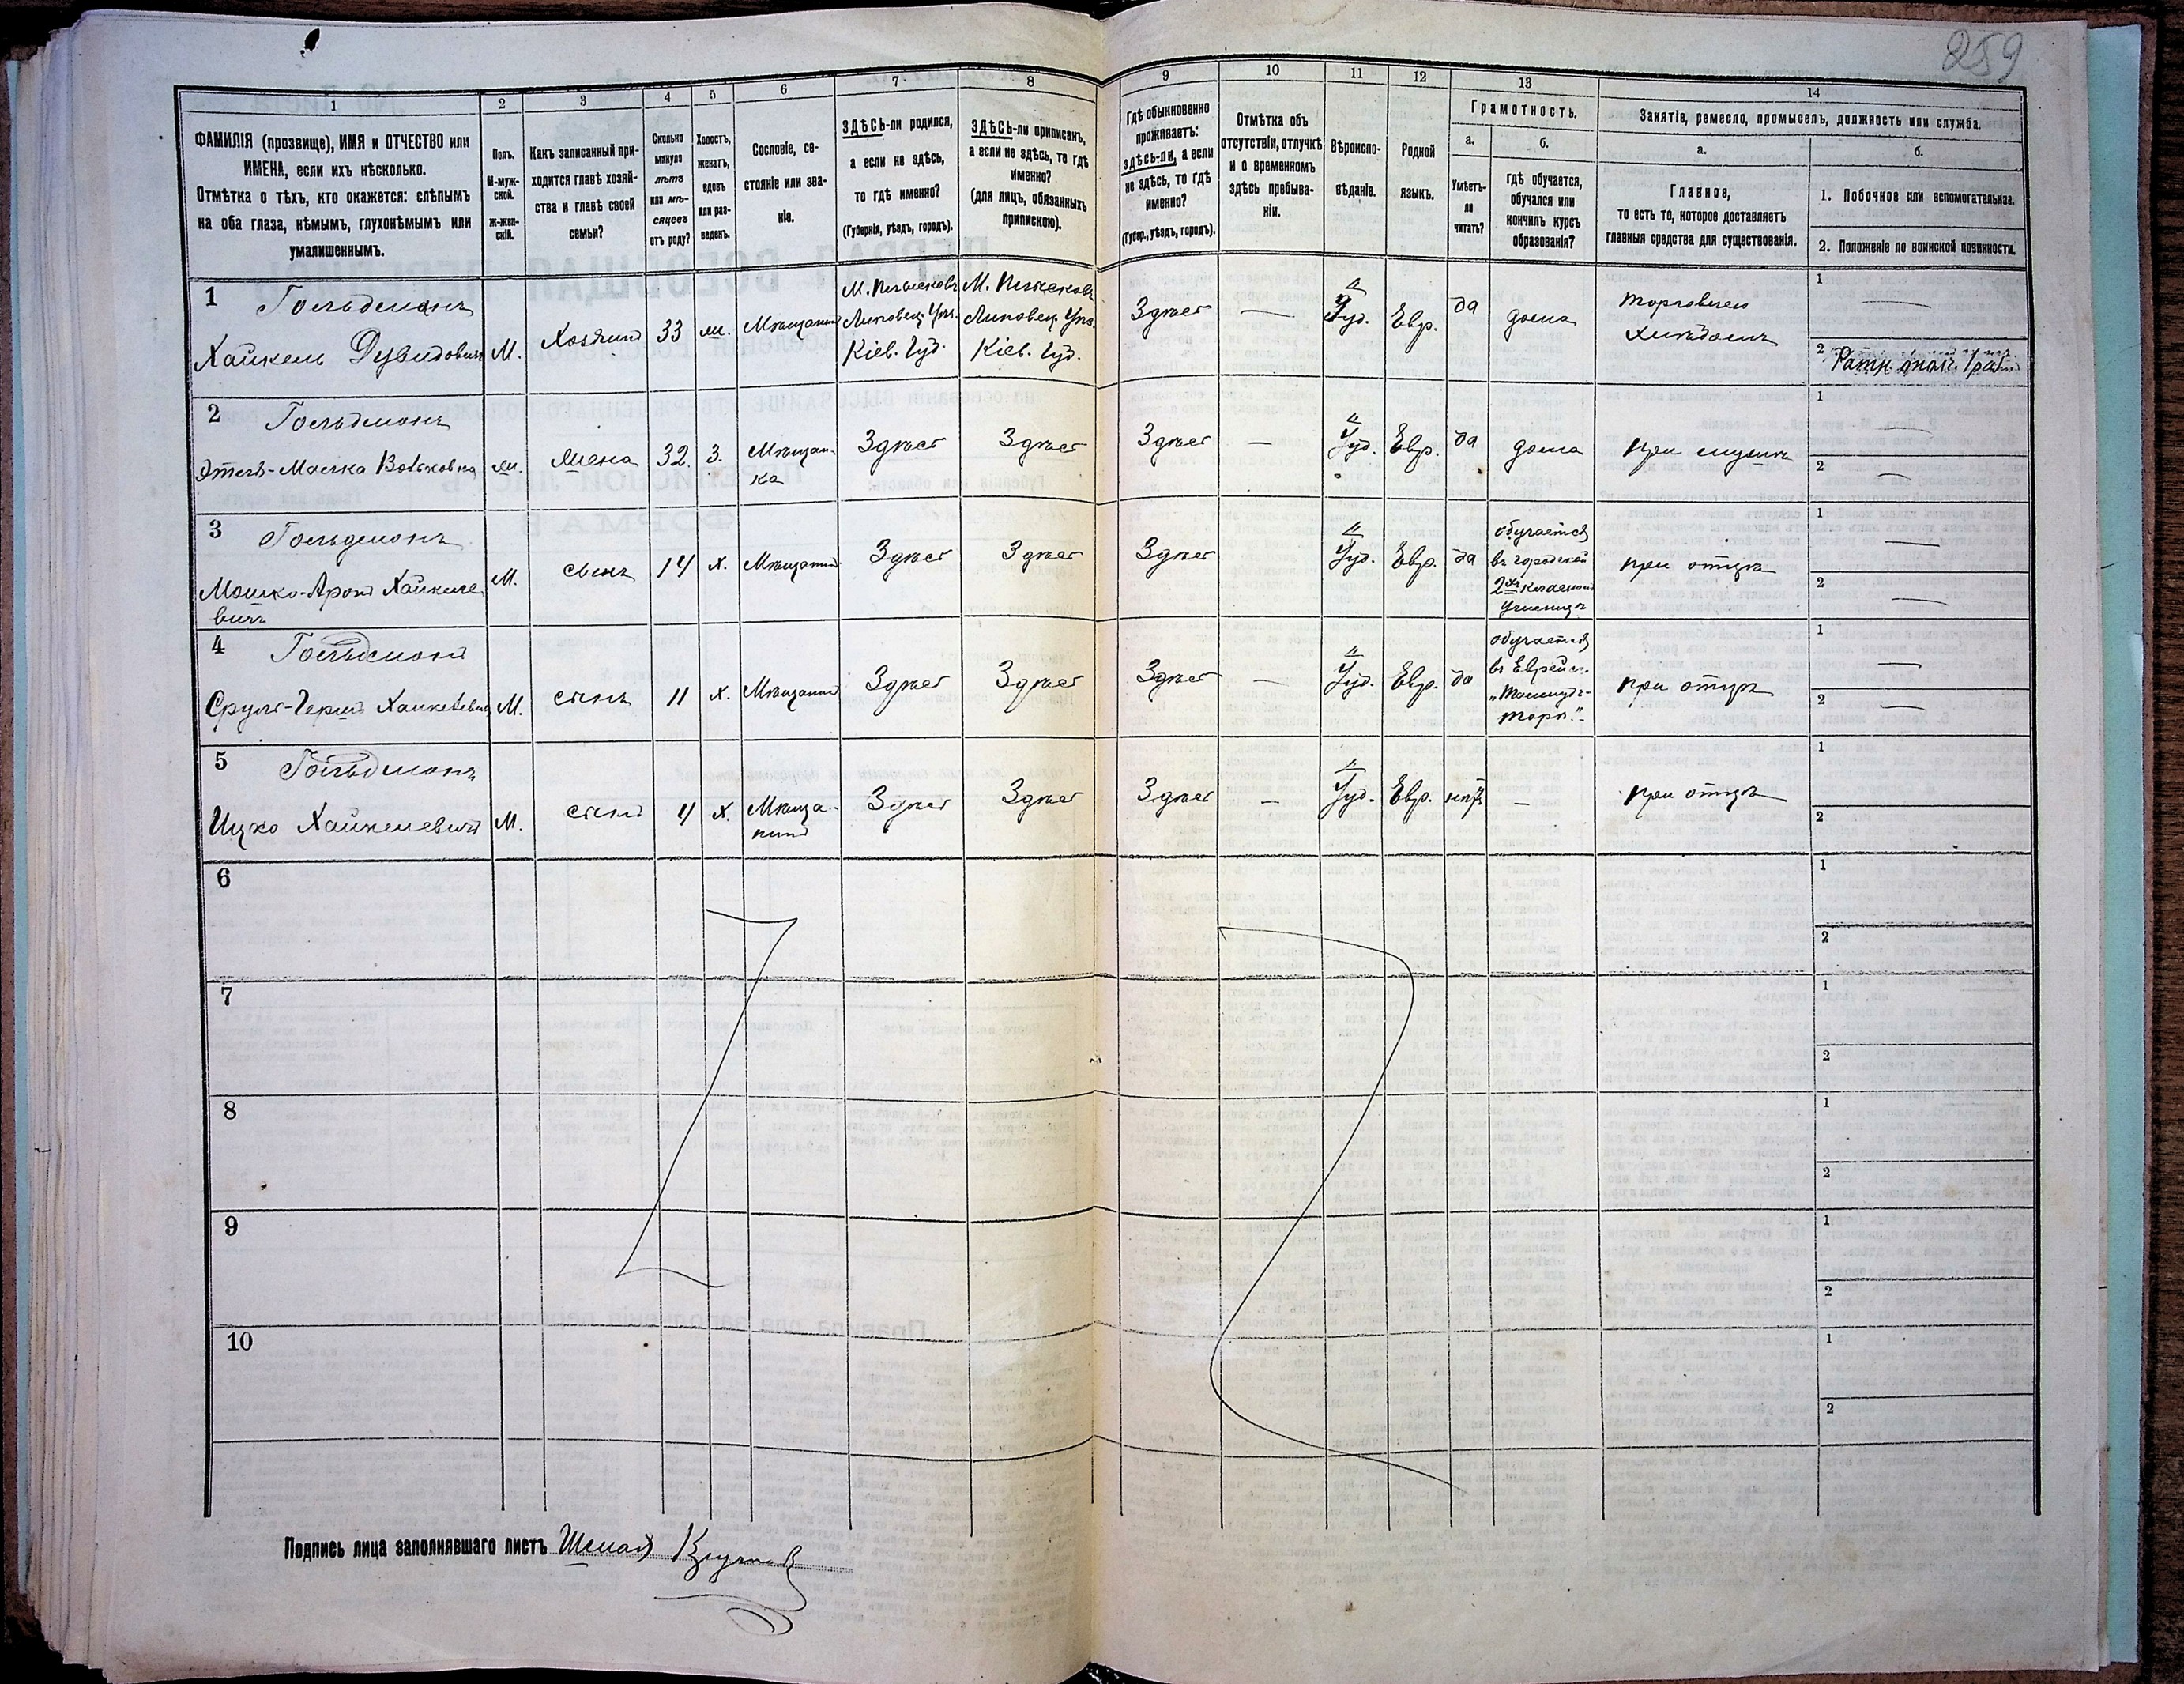 259
1
2
3
4
5
6
7
8
9
10
11
12
13
14
ФАМИЛІЯ (прозвище), ИМЯ и ОТЧЕСТВО или
ИМЕНА, если ихъ нѣсколько.
Отмѣтка о тѣхъ, кто окажется: слѣпымъ
на оба глаза, нѣмымъ, глухонѣмымъ или
умалишеннымъ.
Полъ.
М-муж-
ской.
Ж-жен-
скій.
Какъ записанный при-
ходится главѣ хозяй-
ства и главѣ своей
семьи?
Сколько
минуло
лѣтъ
или мѣ-
сяцевъ
отъ роду?
Холостъ,
женатъ,
вдовъ
или раз-
веденъ.
Сословіе, со-
стояніе или зва-
ніе.
ЗДѢСЬ-ли родился,
а если не здѣсь,
то гдѣ именно?
(Губернія, уѣздъ, городъ).
ЗДѢСЬ-ли приписанъ,
а если не здѣсь, то гдѣ
именно?
(для лицъ, обязанныхъ
припискою).
Гдѣ обыкновенно
проживаетъ:
здѣсь-ли, а если
не здѣсь, то гдѣ
именно?
(Губер., уѣздъ, городъ).
Отмѣтка объ
отсутствіи, отлучкѣ
и о временномъ
здѣсь пребыва-
ніи.
Вѣроиспо-
вѣданіе.
Родной
языкъ.
Грамотность.
а.
Умѣетъ-
ли
читать?
б.
гдѣ обучается,
обучался или
кончилъ курсъ
образованія?
Занятіе, ремесло, промыселъ, должность или служба.
а.
Главное,
то есть то, которое доставляетъ
главныя средства для существованія.
б.
1. Побочное или вспомогательное.
2. Положеніе по воинской повинности.
1 Гольдманъ
Хайкель Дувидовичъ
М.
Хозяинъ
33
ж.
Мѣщанинъ
Липовец. Уѣз.
Кіев. Губ.
Липовец. Уѣз.
Кіев. Губ.
Здѣсь
—
Іуд.
Евр.
да
дома
торговецъ
хлѣбомъ
1 —
2 Ратн. опол. 1 разр.
2 Гольдманъ
Этель-Малка Вольковна
ж.
жена
32
З.
Мѣщан-
ка
Здѣсь
Здѣсь
Здѣсь
—
Іуд.
Евр.
да
дома
при мужѣ
1 —
2 —
3 Гольдманъ
Мошко-Аронъ Хайкеле-
вичъ
М.
сынъ
14
х.
Мѣщанинъ
Здѣсь
Здѣсь
Здѣсь
Іуд.
Евр.
да
обучается
въ городской
2хъ классномъ
училищѣ
при отцѣ
1 —
2 —
4 Гольдманъ
Сруль-Гершъ Хайкелевичъ
М.
сынъ
11
х.
Мѣщанинъ
Здѣсь
Здѣсь
Здѣсь
—
Іуд.
Евр.
да
обучается
въ Еврейск.
„Талмудъ-
торѣ."
при отцѣ
1 —
2 —
5 Гольдманъ
Ицко Хайкелевичъ
М.
сынъ
4
х.
Мѣща-
нинъ
Здѣсь
Здѣсь
Здѣсь
—
Іуд.
Евр.
нѣтъ
—
при отцѣ
1
2
6
1
2
7
1
2
8
1
2
9
1
2
10
1
2
Подпись лица заполнявшаго листъ